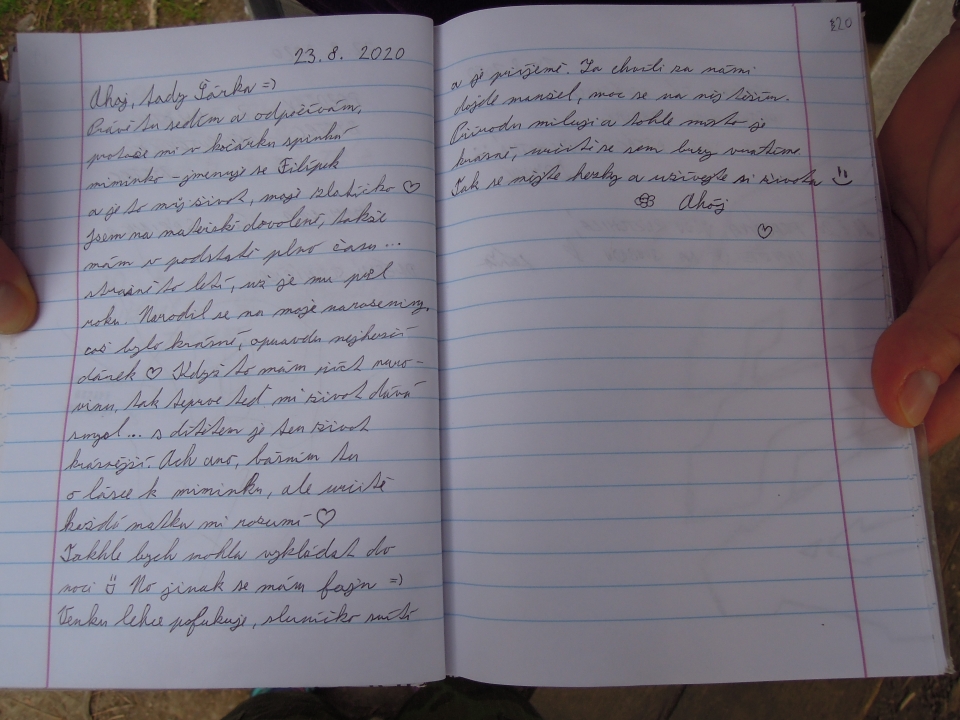 23. 8. 2020
Ahoj, tady Šárka =)
Právě tu sedím a odpočívám,
protože mi v kočárku spinká
miminko - jmenuje se Filípek
a je to můj život, moje zlatíčko ♡
Jsem na mateřské dovolené, takže
mám v podstatě plno času...
strašně to letí, už je mu půl
roku. Narodil se na moje narozeniny,
což bylo krásné, opravdu nejhezčí
dárek ♡ Když to mám říct naro-
vinu, tak teprve teď mi život dává
smysl... s dítětem je ten život
krásnější. Ach ano, básním tu
o lásce k miminku, ale určitě
každá matka mi rozumí ♡
Takhle bych mohla vykládat do
noci :) No jinak se mám fajn =)
Venku lehce pofukuje, sluníčko svítí
220
a je příjemě. Za chvíli za námi
dojde manžel, moc se na něj těším.
Přírodu miluji a tohle místo je
krásné, určitě se sem brzy vrátíme.
Tak se mějte hezky a užívejte si života :)
Ahoj
♡